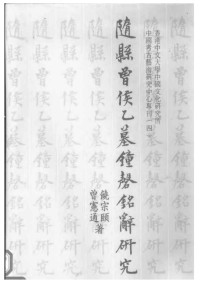 香港中文大學中國文化研究所
中國考古藝術研究中心專刊（四）
隨縣曾侯乙墓鐘磬銘辭研究
饒宗頤
曾憲通著